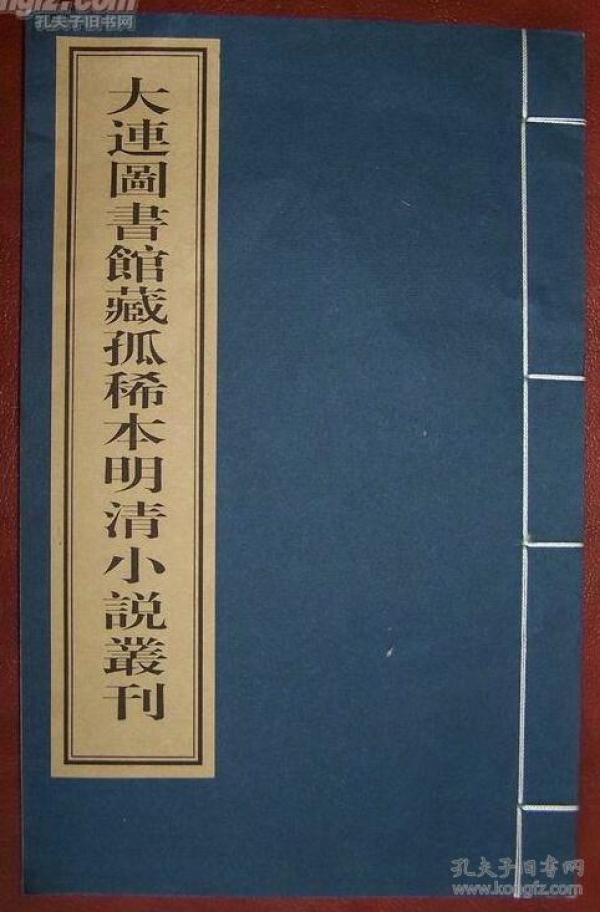 gfz.com
孔夫子旧书网
大連圖書館藏孤稀本明清小説叢刊
孔夫子旧书网
www.kongfz.com